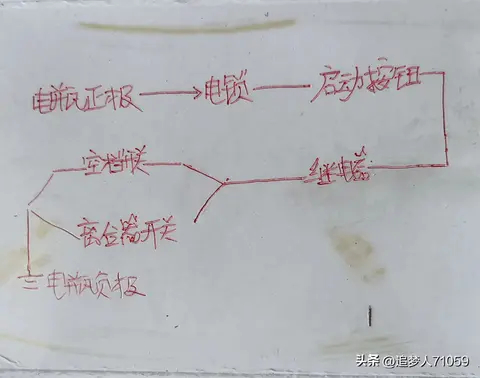 电瓶正极 电锁 启动按钮
空档开关 继电器
离合器开关
电瓶负极
头条 @追梦人71059